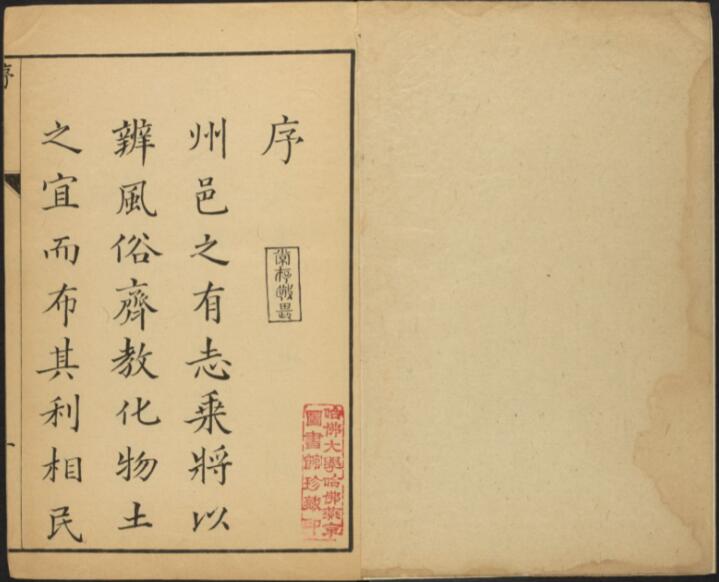 序
州邑之有志乘將以
辨風俗齊教化物土
之宜而布其利相民
哈佛大學哈佛燕京
圖書館珍藏印
序